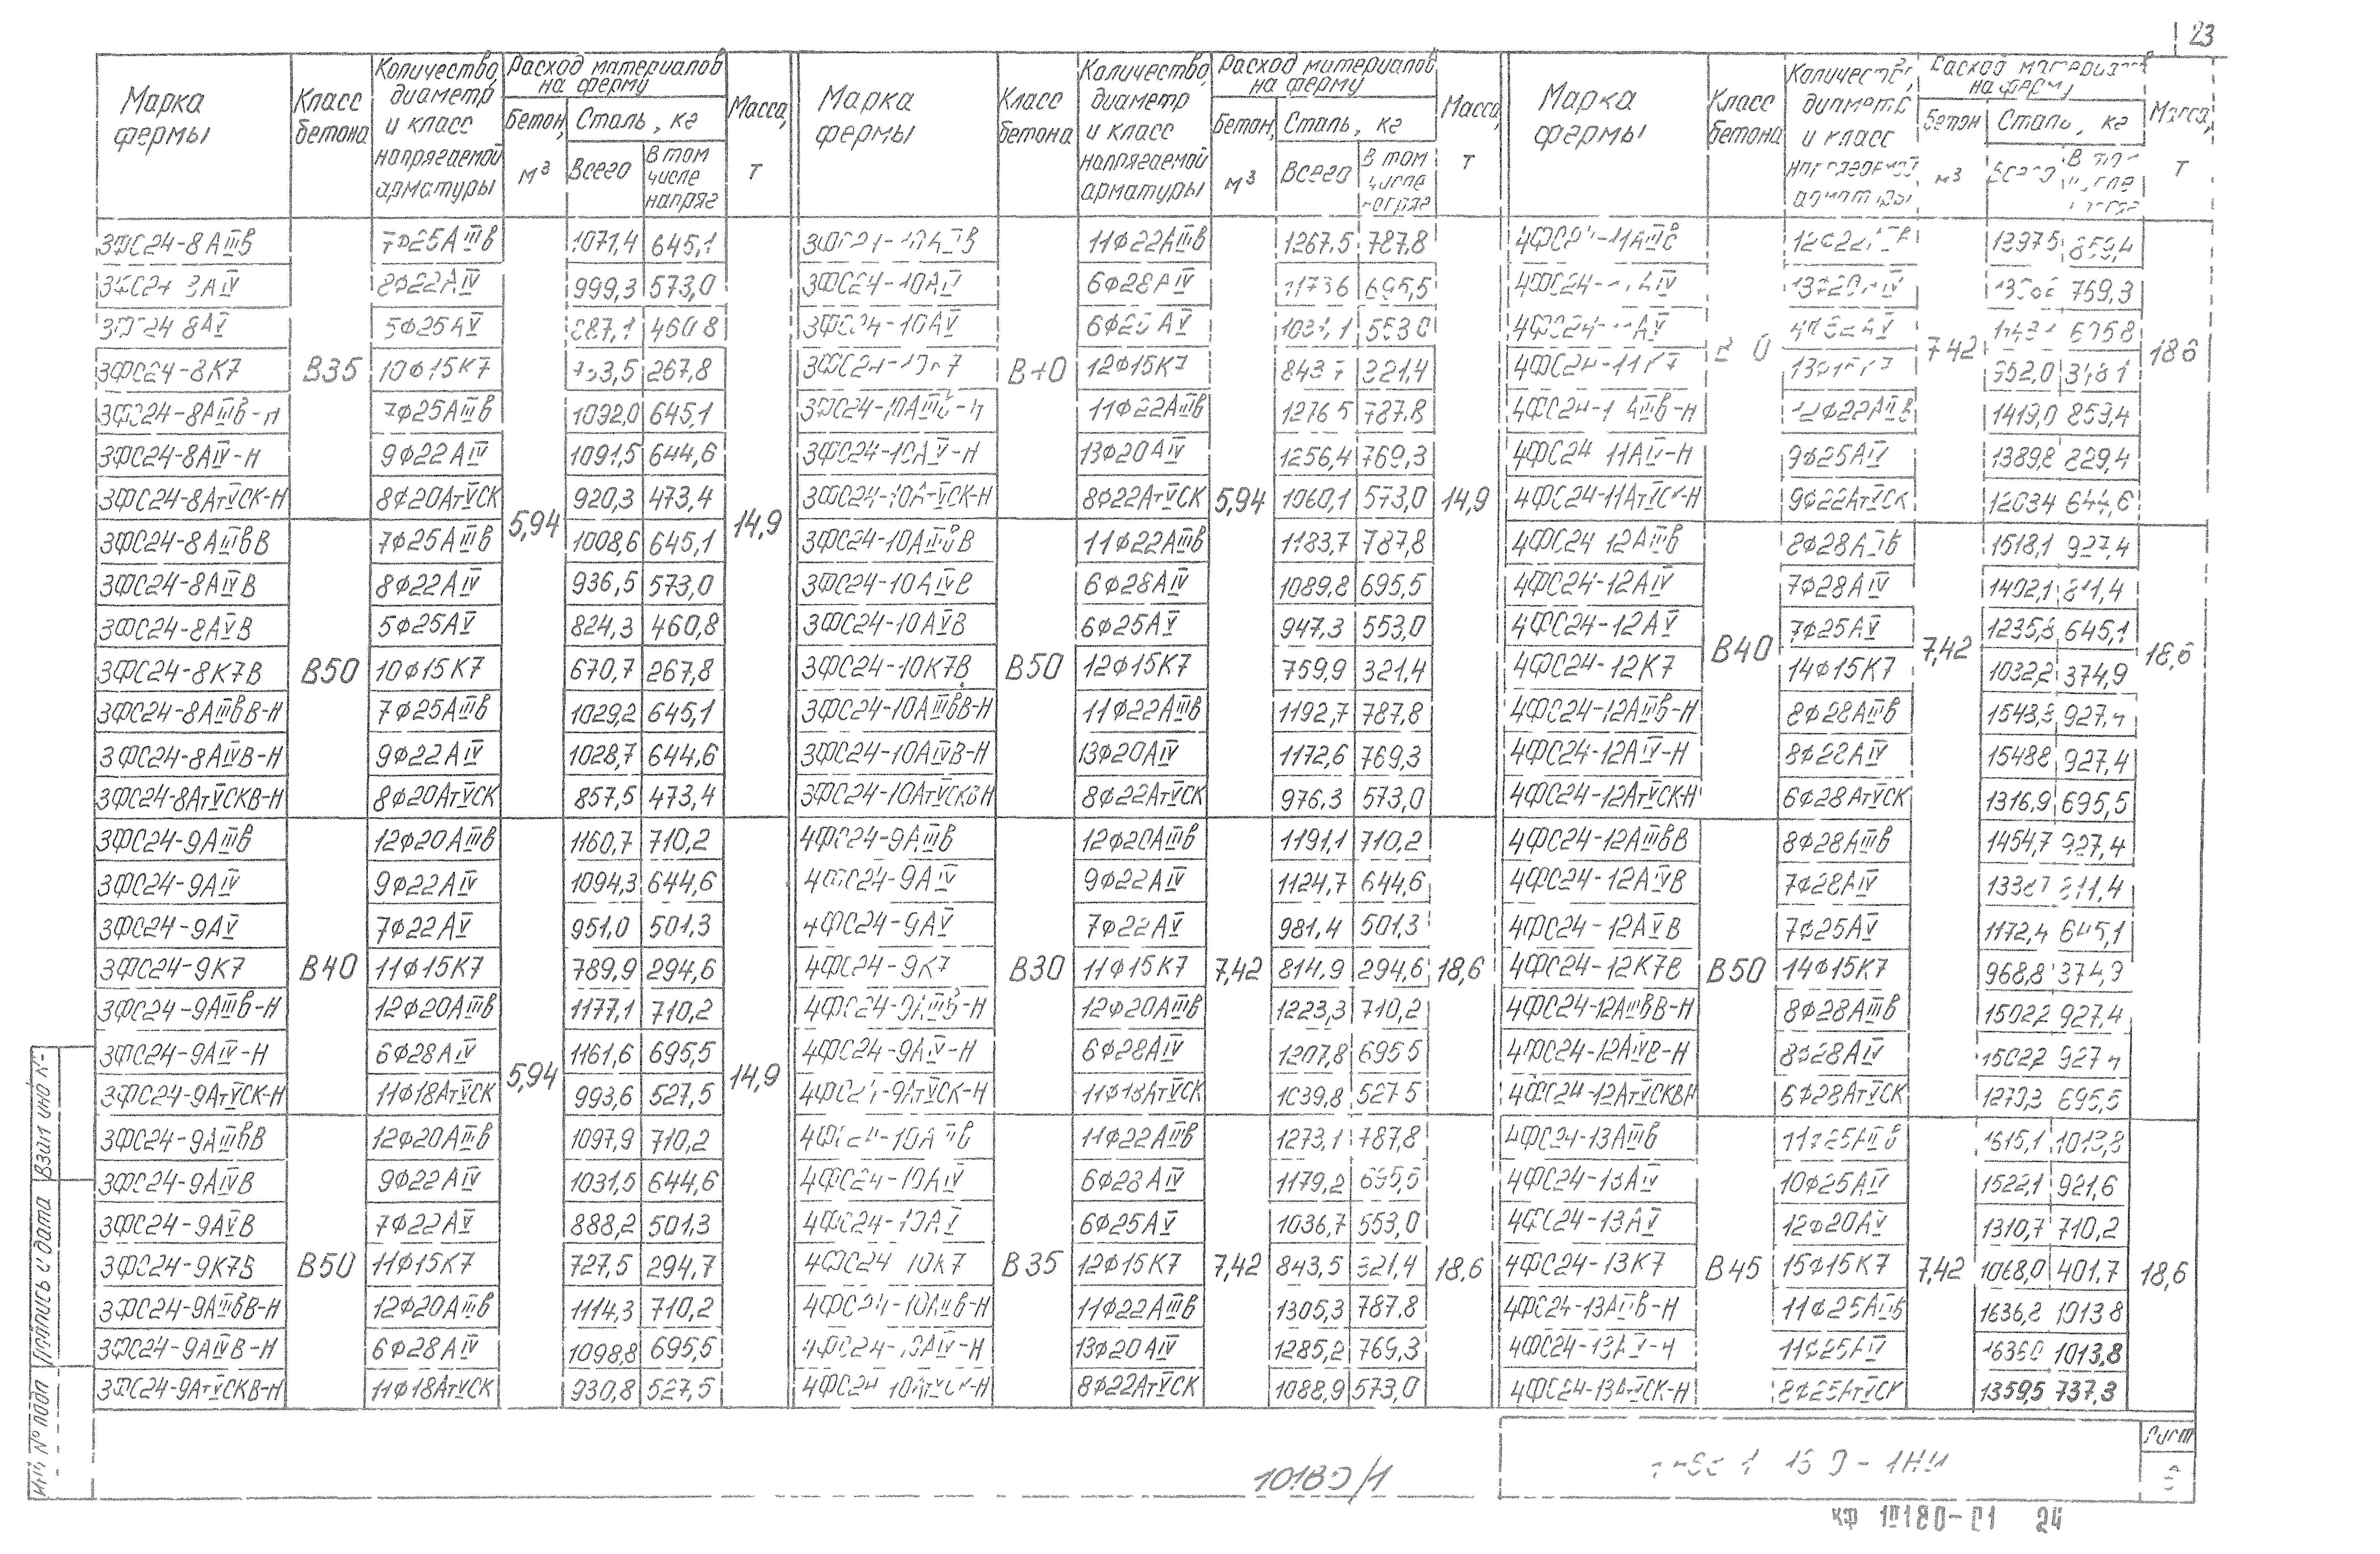 23
Марка фермы | Класс бетона | Количество, диаметр и класс напрягаемой арматуры | Расход материалов на ферму | Бетон, м³ | Сталь, кг | Всего | В том числе напряг | Масса, т
3ФС24-8АIIIв | В35 | 7ø25АIIIв | 5,94 | 1071,4 | 645,1 | 14,9
3ФС24-8АIV | 8ø22АIV | 999,3 | 573,0
3ФС24-8АV | 5ø25АV | 887,1 | 460,8
3ФС24-8К7 | 10ø15К7 | 267,8
3ФС24-8АIIIв-Н | 7ø25АIIIв | 1092,0 | 645,1
3ФС24-8АIV-Н | 9ø22АIV | 1091,5 | 644,6
3ФС24-8АтVСК-Н | 8ø20АтVСК | 920,3 | 473,4
3ФС24-8АIIIвВ | В50 | 7ø25АIIIв | 1008,6 | 645,1
3ФС24-8АIVВ | 8ø22АIV | 936,5 | 573,0
3ФС24-8АVВ | 5ø25АV | 824,3 | 460,8
3ФС24-8К7В | 10ø15К7 | 670,7 | 267,8
3ФС24-8АIIIвВ-Н | 7ø25АIIIв | 1029,2 | 645,1
3ФС24-8АIVВ-Н | 9ø22АIV | 1028,7 | 644,6
3ФС24-8АтVСКВ-Н | 8ø20АтVСК | 857,5 | 473,4
3ФС24-9АIIIв | В40 | 12ø20АIIIв | 5,94 | 1160,7 | 710,2 | 14,9
3ФС24-9АIV | 9ø22АIV | 1094,3 | 644,6
3ФС24-9АV | 7ø22АV | 951,0 | 501,3
3ФС24-9К7 | 11ø15К7 | 789,9 | 294,6
3ФС24-9АIIIв-Н | 12ø20АIIIв | 1177,1 | 710,2
3ФС24-9АIV-Н | 6ø28АIV | 1161,6 | 695,5
3ФС24-9АтVСК-Н | 11ø18АтVСК | 993,6 | 527,5
3ФС24-9АIIIвВ | В50 | 12ø20АIIIв | 1097,9 | 710,2
3ФС24-9АIVВ | 9ø22АIV | 1031,5 | 644,6
3ФС24-9АVВ | 7ø22АV | 888,2 | 501,3
3ФС24-9К7В | 11ø15К7 | 727,5 | 294,7
3ФС24-9АIIIвВ-Н | 12ø20АIIIв | 1114,3 | 710,2
3ФС24-9АIVВ-Н | 6ø28АIV | 1098,8 | 695,5
3ФС24-9АтVСКВ-Н | 11ø18АтVСК | 930,8 | 527,5
Марка фермы | Класс бетона | Количество, диаметр и класс напрягаемой арматуры | Расход материалов на ферму | Бетон, м³ | Сталь, кг | Всего | В том числе напряг | Масса, т
3ФС24-10АIIIв | В40 | 11ø22АIIIв | 5,94 | 1267,5 | 787,8 | 14,9
3ФС24-10АIV | 6ø28АIV | 1173,6 | 695,5
3ФС24-10АV | 6ø25АV | 553,0
3ФС24-10К7 | 12ø15К7 | 321,4
3ФС24-10АIIIв-Н | 11ø22АIIIв | 1276,5 | 787,8
3ФС24-10АIV-Н | 13ø20АIV | 1256,4 | 769,3
3ФС24-10АтVСК-Н | 8ø22АтVСК | 1060,1 | 573,0
3ФС24-10АIIIвВ | В50 | 11ø22АIIIв | 1183,7 | 787,8
3ФС24-10АIVВ | 6ø28АIV | 1089,8 | 695,5
3ФС24-10АVВ | 6ø25АV | 947,3 | 553,0
3ФС24-10К7В | 12ø15К7 | 759,9 | 321,4
3ФС24-10АIIIвВ-Н | 11ø22АIIIв | 1192,7 | 787,8
3ФС24-10АIVВ-Н | 13ø20АIV | 1172,6 | 769,3
3ФС24-10АтVСКВН | 8ø22АтVСК | 976,3 | 573,0
4ФС24-9АIIIв | В30 | 12ø20АIIIв | 7,42 | 1191,1 | 710,2 | 18,6
4ФС24-9АIV | 9ø22АIV | 1124,7 | 644,6
4ФС24-9АV | 7ø22АV | 981,4 | 501,3
4ФС24-9К7 | 11ø15К7 | 814,9 | 294,6
4ФС24-9АIIIв-Н | 12ø20АIIIв | 1223,3 | 710,2
4ФС24-9АIV-Н | 6ø28АIV | 1207,8 | 695,5
4ФС24-9АтVСК-Н | 11ø18АтVСК | 1039,8 | 527,5
4ФС24-10АIIIв | В35 | 11ø22АIIIв | 7,42 | 1273,1 | 787,8 | 18,6
4ФС24-10АIV | 6ø28АIV | 1179,2 | 695,5
4ФС24-10АV | 6ø25АV | 1036,7 | 553,0
4ФС24-10К7 | 12ø15К7 | 843,5 | 321,4
4ФС24-10АIIIв-Н | 11ø22АIIIв | 1305,3 | 787,8
4ФС24-10АIV-Н | 13ø20АIV | 1285,2 | 769,3
4ФС24-10АтVСК-Н | 8ø22АтVСК | 1088,9 | 573,0
Марка фермы | Класс бетона | Количество, диаметр и класс напрягаемой арматуры | Расход материалов на ферму | Бетон м³ | Сталь, кг | Всего | В том числе напряг | Масса, т
4ФС24-11АIIIв | 12ø22АIIIв | 7,42 | 1397,5 | 859,4 | 18,6
4ФС24-11АIV | 13ø20АIV | 769,3
4ФС24-11АV
4ФС24-11К7 | 952,0
4ФС24-11АIIIв-Н | 12ø22АIIIв | 1419,0 | 859,4
4ФС24-11АIV-Н | 9ø25АIV | 1389,8 | 829,4
4ФС24-11АтVСК-Н | 9ø22АтVСК | 1203,4 | 644,6
4ФС24-12АIIIв | В40 | 8ø28АIIIв | 7,42 | 1518,1 | 927,4 | 18,6
4ФС24-12АIV | 7ø28АIV | 1402,1 | 811,4
4ФС24-12АV | 7ø25АV | 1235,8 | 645,1
4ФС24-12К7 | 14ø15К7 | 1032,2 | 374,9
4ФС24-12АIIIв-Н | 8ø28АIIIв | 927,4
4ФС24-12АIV-Н | 8ø28АIV | 1548,8 | 927,4
4ФС24-12АтVСК-Н | 6ø28АтVСК | 1316,9 | 695,5
4ФС24-12АIIIвВ | В50 | 8ø28АIIIв | 1454,7 | 927,4
4ФС24-12АIVВ | 7ø28АIV | 811,4
4ФС24-12АVВ | 7ø25АV | 1172,4 | 645,1
4ФС24-12К7В | 14ø15К7 | 968,8 | 374,9
4ФС24-12АIIIвВ-Н | 8ø28АIIIв | 1502,2 | 927,4
4ФС24-12АIVВ-Н | 8ø28АIV | 1502,2 | 927,4
4ФС24-12АтVСКВН | 6ø28АтVСК | 695,5
4ФС24-13АIIIв | В45 | 11ø25АIIIв | 7,42 | 1615,1 | 1013,8 | 18,6
4ФС24-13АIV | 10ø25АIV | 1522,1 | 921,6
4ФС24-13АV | 12ø20АV | 1310,7 | 710,2
4ФС24-13К7 | 15ø15К7 | 1068,0 | 401,7
4ФС24-13АIIIв-Н | 11ø25АIIIв | 1636,2 | 1013,8
4ФС24-13АIV-Н | 11ø25АIV | 1013,8
4ФС24-13АтVСК-Н | 8ø25АтVСК | 1359,5 | 737,3
Инв № подл | Подпись и дата | Взам инв №
10180/1
Лист
КФ 10180-01 24